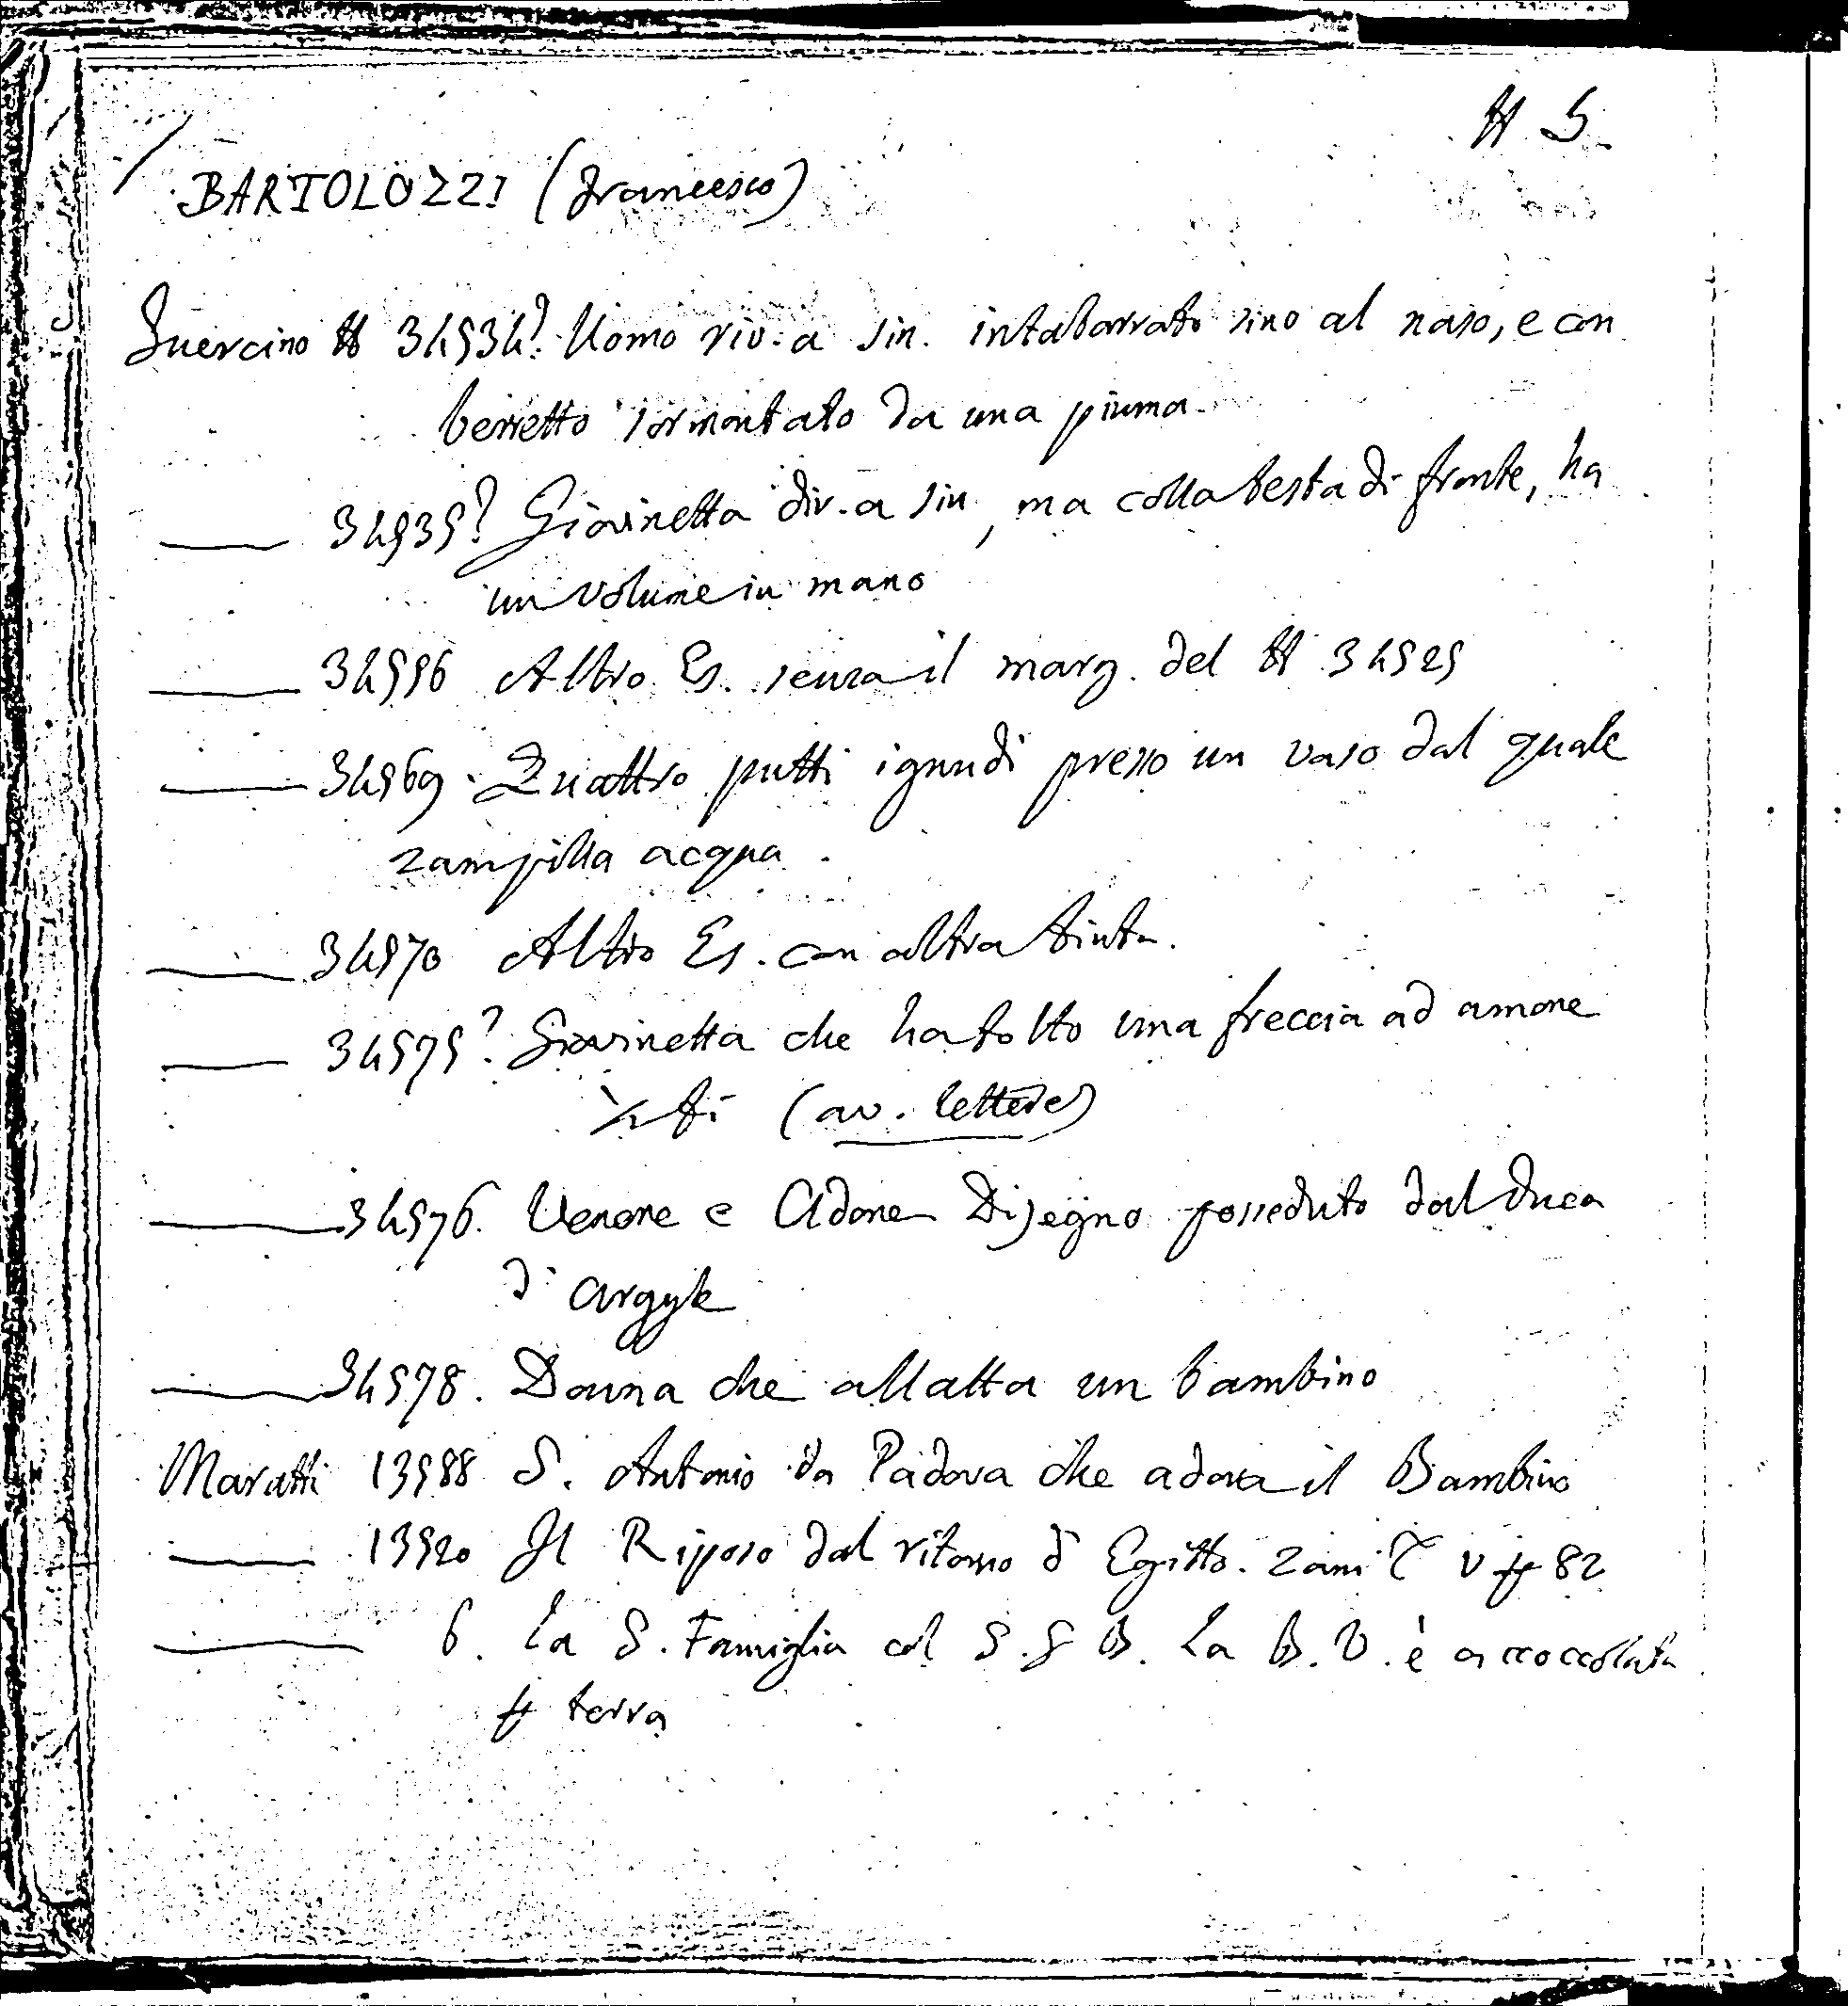 N 5
BARTOLOZZI (Francesco)
Guercino N 34534? Uomo riv. a sin. intabarrato sino al naso, e con
berretto sormontato da una piuma.
34535? Giovinetta div. a sin, ma colla testa di fronte, ha
un volume in mano
34556 Altro Es. senza il marg. del N 34525
34569. Quattro putti ignudi presso un vaso dal quale
zampilla acqua.
34570 Altro Es. con altra tinta.
34575? Giovinetta che ha tolto una freccia ad amore
(av. lettere)
34576. Venere e Adone Disegno posseduto dal Duca
d'Argyle
34578. Donna che allatta un bambino
Maratti 13588 S. Antonio da Padova che adora il Bambino
13520 Il Riposo dal ritorno d'Egitto. Zani V 82
6. La S. Famiglia col S. G B. La B. V. è accoccolata
terra